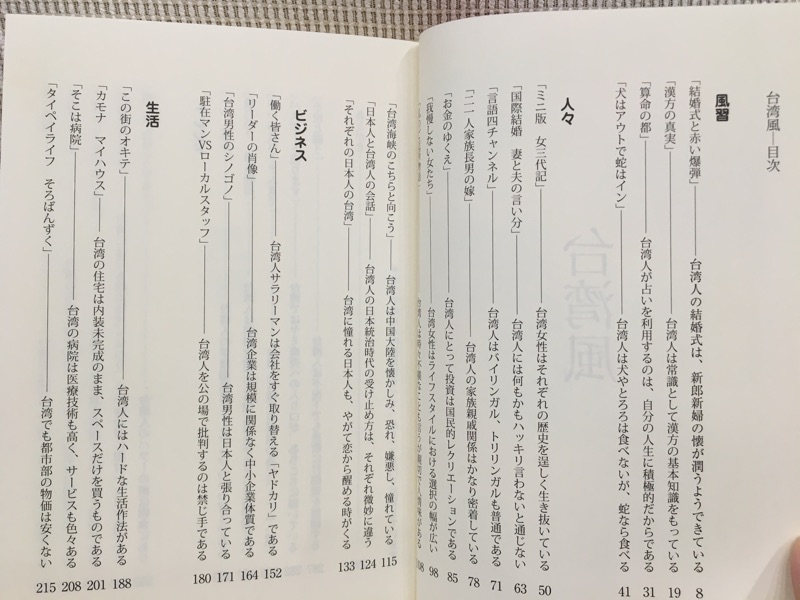 台湾風―目次
風習
「結婚式と赤い爆弾」―台湾人の結婚式は、新郎新婦の懐が潤うようできている 8
「漢方の真実」―台湾人は常識として漢方の基本知識をもっている 19
「算命の都」―台湾人が占いを利用するのは、自分の人生に積極的だからである 31
「犬はアウトで蛇はイン」―台湾人は犬やとろろは食べないが、蛇なら食べる 41
人々
「ミニ版 女三代記」―台湾女性はそれぞれの歴史を逞しく生き抜いている 50
「国際結婚 妻と夫の言い分」―台湾人には何もかもハッキリ言わないと通じない 63
「言語四チャンネル」―台湾人はバイリンガル、トリリンガルも普通である 71
「二一人家族長男の嫁」―台湾人の家族親戚関係はかなり密着している 78
「お金のゆくえ」―台湾人にとって投資は国民的レクリエーションである 85
「我慢しない女たち」―台湾女性はライフスタイルにおける選択の幅が広い 98
108
「台湾海峡のこちらと向こう」―台湾人は中国大陸を懐かしみ、恐れ、嫌悪し、憧れている 115
「日本人と台湾人の会話」―台湾人の日本統治時代の受け止め方は、それぞれ微妙に違う 124
「それぞれの日本人の台湾」―台湾に憧れる日本人も、やがて恋から醒める時がくる 133
ビジネス
「働く皆さん」―台湾人サラリーマンは会社をすぐ取り替える「ヤドカリ」である 152
「リーダーの肖像」―台湾企業は規模に関係なく中小企業体質である 164
「台湾男性のシノゴノ」―台湾男性は日本人と張り合っている 171
「駐在マンVSローカルスタッフ」―台湾人を公の場で批判するのは禁じ手である 180
生活
「この街のオキテ」―台湾人にはハードな生活作法がある 188
「カモナ マイハウス」―台湾の住宅は内装未完成のまま、スペースだけを買うものである 201
「そこは病院」―台湾の病院は医療技術も高く、サービスも色々ある 208
「タイペイライフ そろばんずく」―台湾でも都市部の物価は安くない 215
台湾風